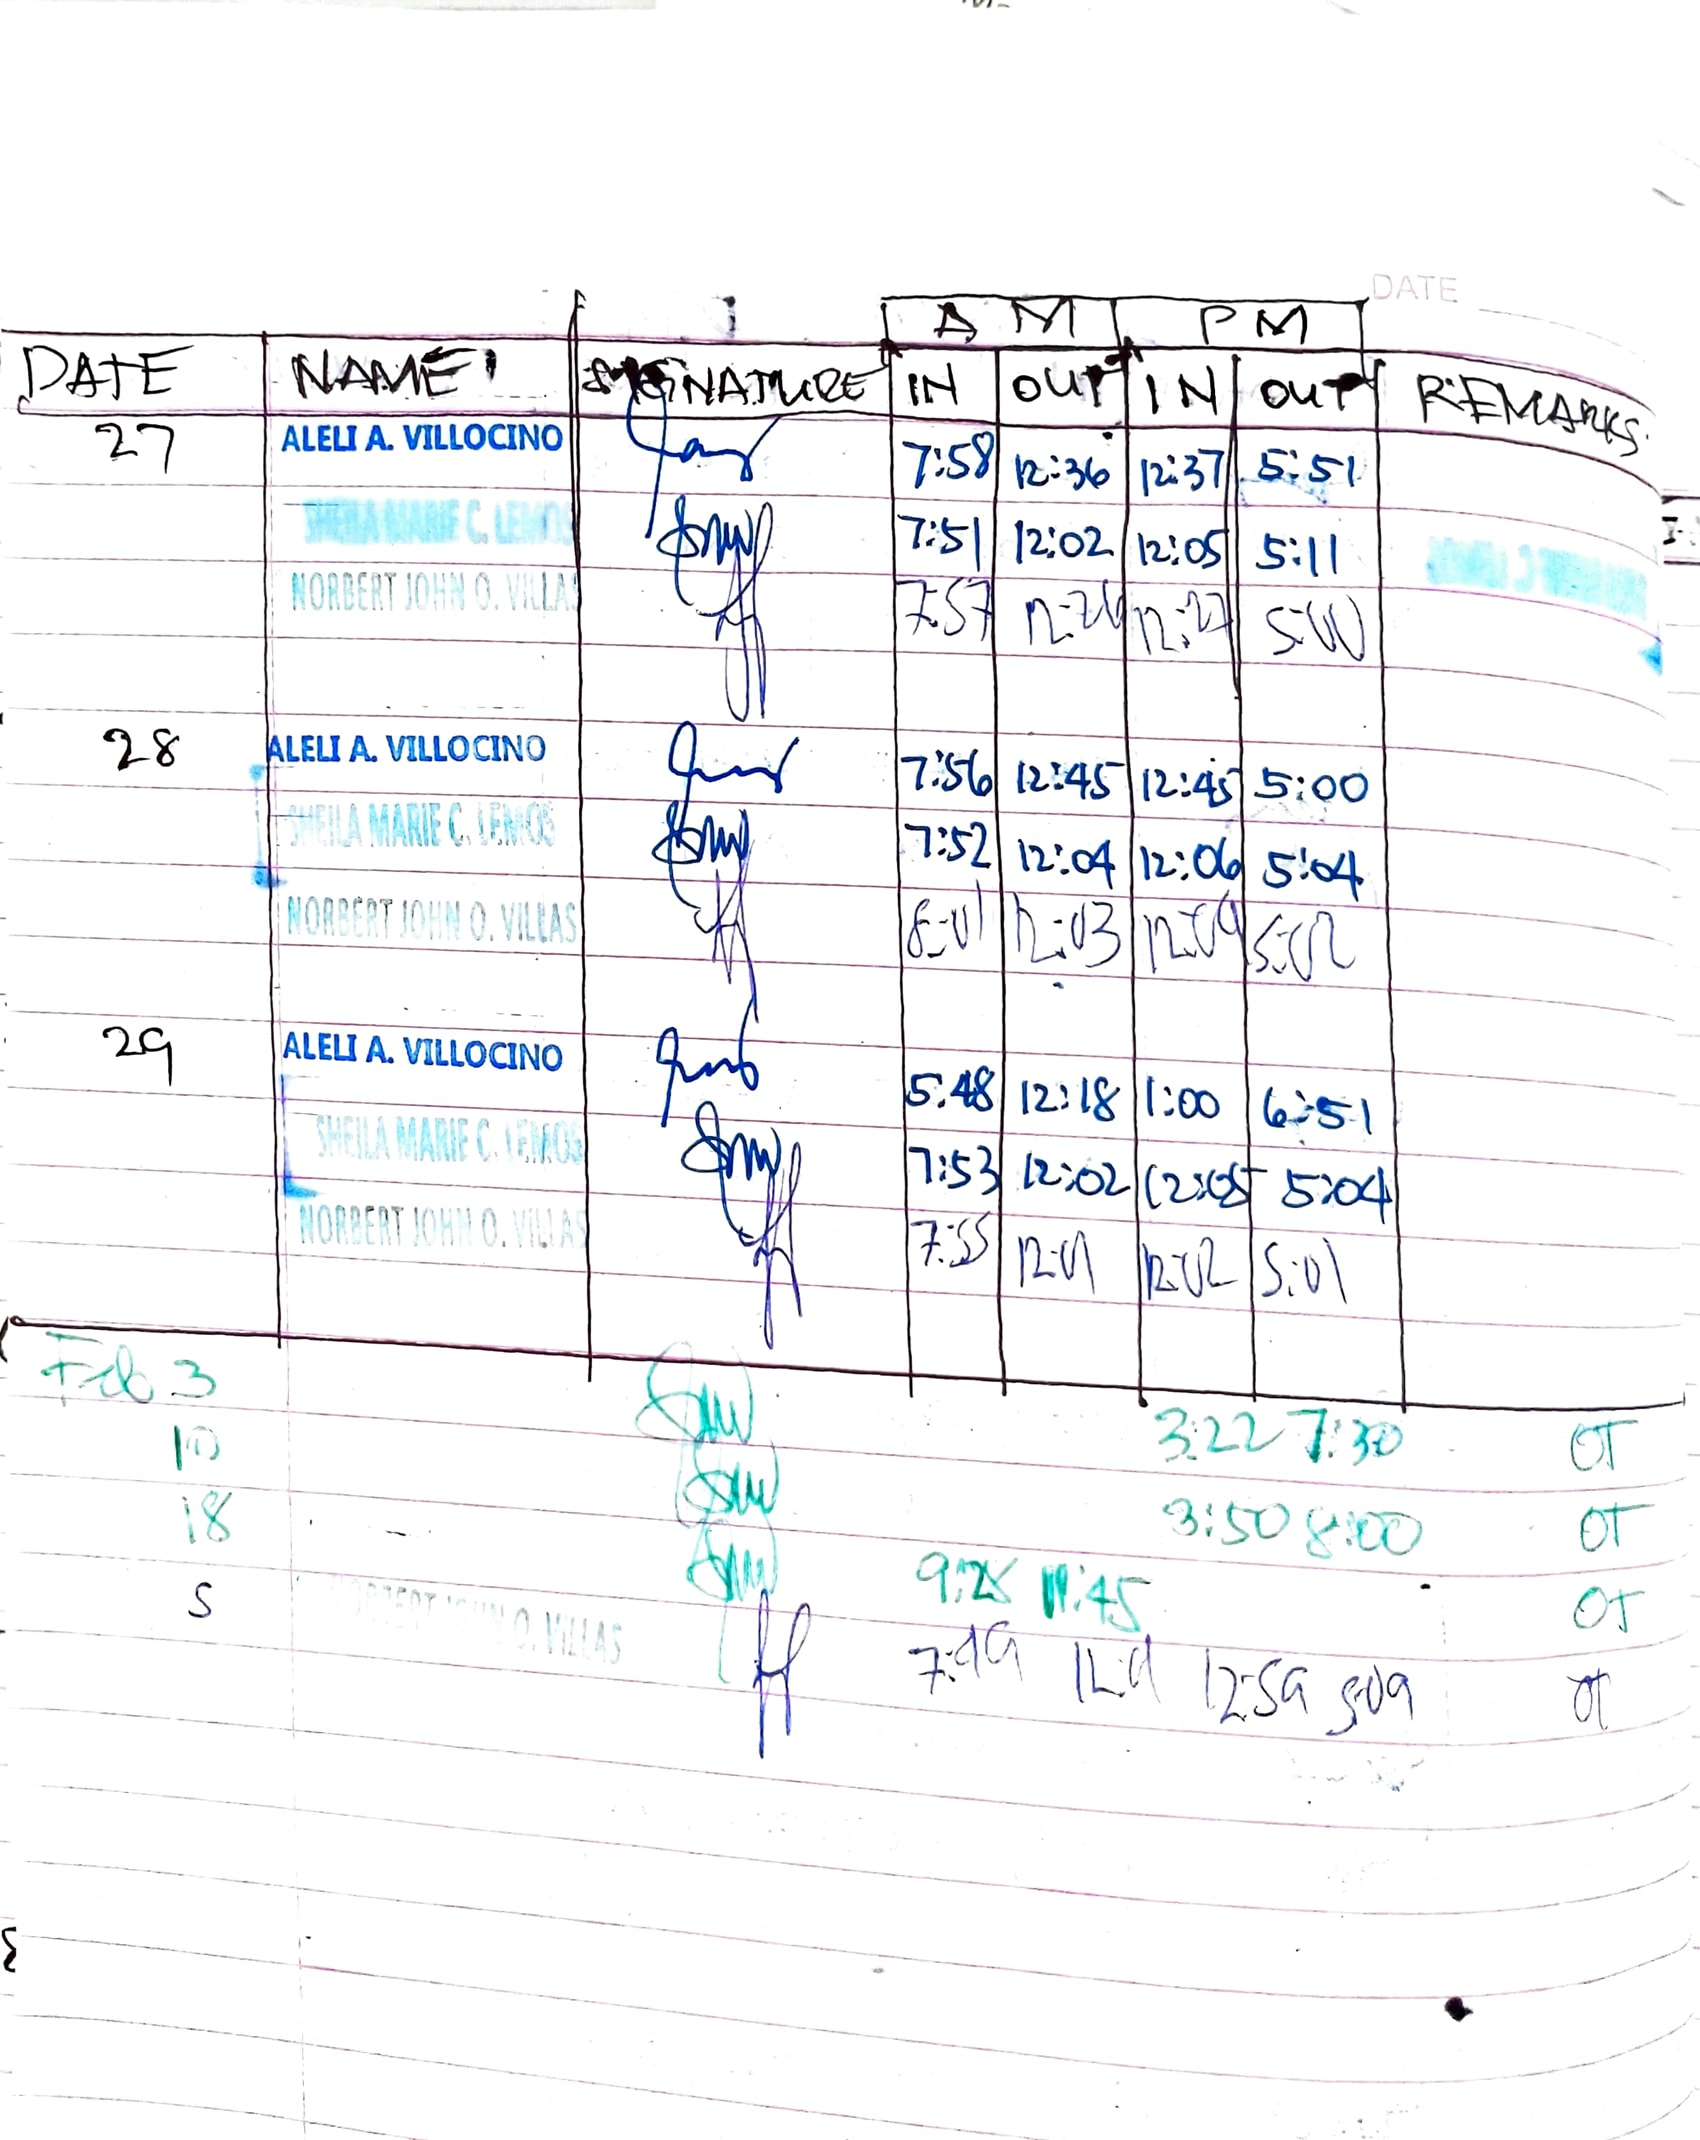 DATE
A M P M
DATE NAME SIGNATURE IN OUT IN OUT REMARKS
27 ALELI A. VILLOCINO 7:58 12:36 12:37 5:51
SHEILA MARIE C. LEMOS 7:51 12:02 12:05 5:11
NORBERT JOHN O. VILLAS 7:57 12:26 12:27 5:00
28 ALELI A. VILLOCINO 7:56 12:45 12:45 5:00
SHEILA MARIE C. LEMOS 7:52 12:04 12:06 5:04
NORBERT JOHN O. VILLAS 8:01 12:03 12:09 5:02
29 ALELI A. VILLOCINO 5:48 12:18 1:00 6:51
SHEILA MARIE C. LEMOS 7:53 12:02 12:05 5:04
NORBERT JOHN O. VILLAS 7:55 12:01 12:02 5:01
Feb 3 3:22 7:30 OT
10 3:50 8:00 OT
18 9:28 11:45 OT
5 NORBERT JOHN O. VILLAS 12:59 5:09 OT